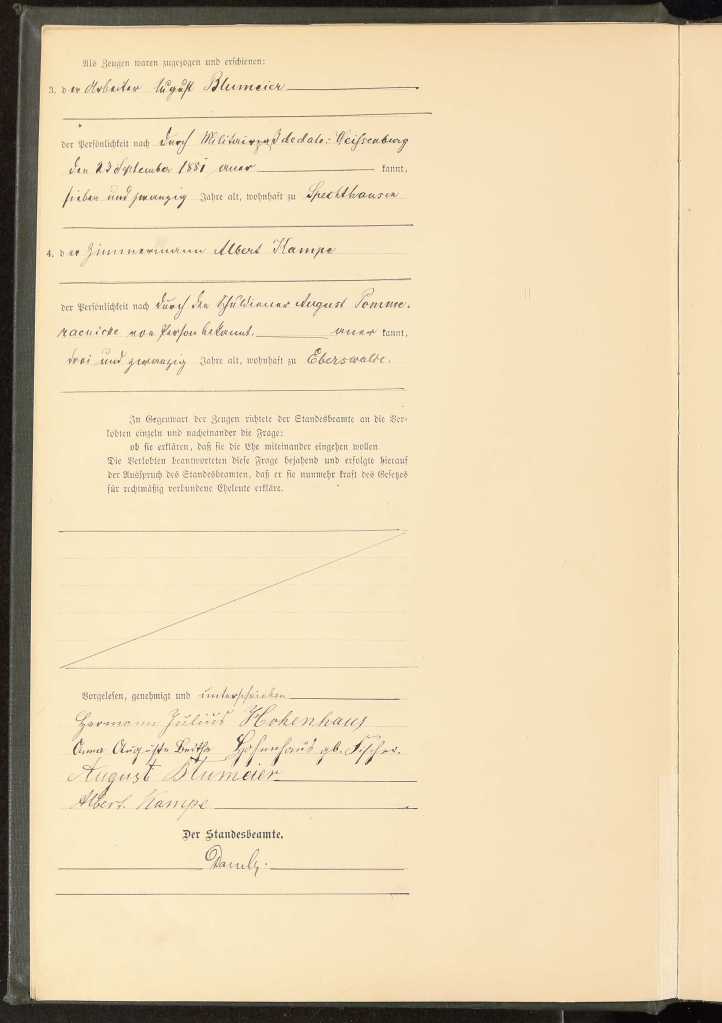 Als Zeugen waren zugezogen und erschienen:
3. der Arbeiter August Blumeier
der Persönlichkeit nach durch Militairpaß de dato:
den 23 September 1881 aner kannt,
sieben und zwanzig Jahre alt, wohnhaft zu Spechthausen
4. der Zimmermann Albert Kampe
der Persönlichkeit nach durch den Schuldiener August Pomme-
raenicke von Person bekannt. aner kannt,
drei und zwanzig Jahre alt, wohnhaft zu Eberswalde.
In Gegenwart der Zeugen richtete der Standesbeamte an die Ver-
lobten einzeln und nacheinander die Frage:
ob sie erklären, daß sie die Ehe miteinander eingehen wollen
Die Verlobten beantworteten diese Frage bejahend und erfolgte hierauf
der Ausspruch des Standesbeamten, daß er sie nunmehr kraft des Gesetzes
für rechtmäßig verbundene Eheleute erkläre.
Vorgelesen, genehmigt und unterschrieben
Hermann Julius Hohenhaus
Anna Auguste Bertha Hohenhaus gb. Fischer.
August Blumeier
Albert Kampe
Der Standesbeamte.